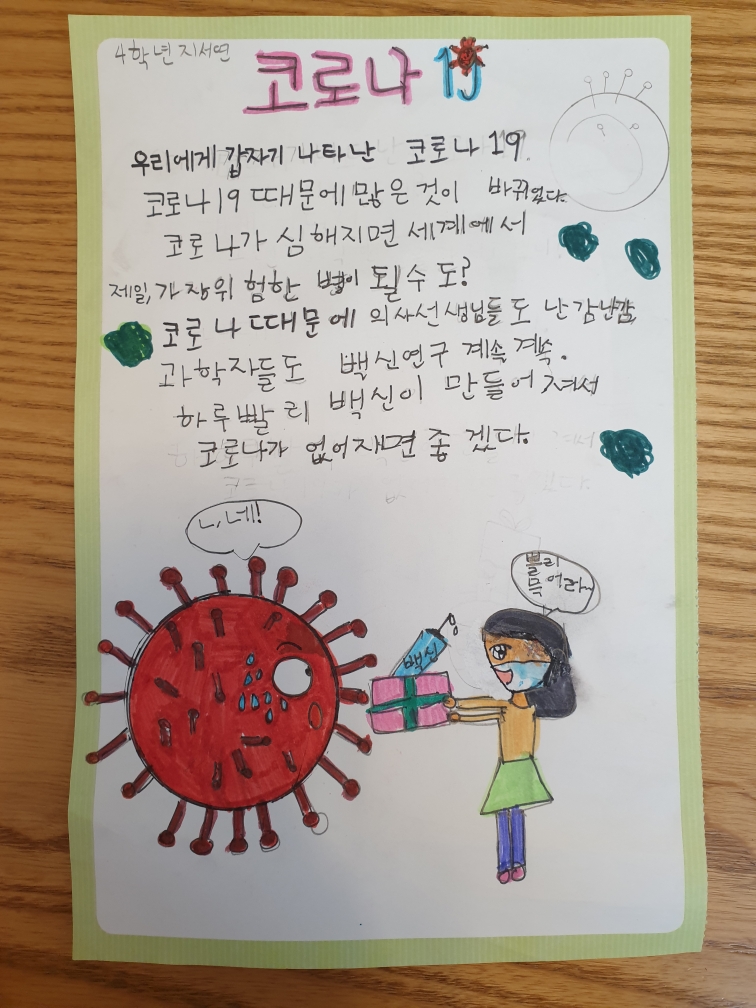 4학년 지서연
코로나 19
우리에게 갑자기 나타난 코로나 19.
코로나19 때문에 많은 것이 바뀌었다.
코로나가 심해지면 세계에서
제일, 가장 위험한 병이 될 수도?
코로나 때문에 의사선생님들도 난감난감
과학자들도 백신연구 계속계속.
하루빨리 백신이 만들어져서
코로나가 없어지면 좋겠다.
ㄴ, 네!
빨리
먹어라~
백신